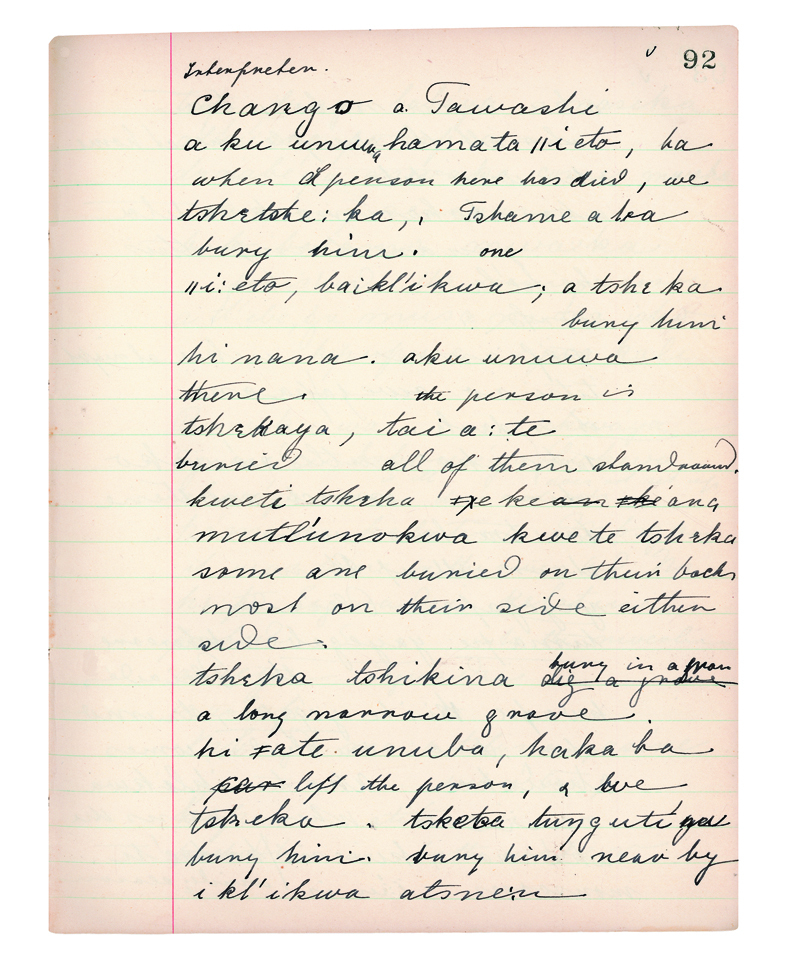 92
Interpreter.
Chango a Tawashi
a ku unuwa hamata ǁi eto, ba
when a person here has died, we
tshetshe: ka, Tshame a ba
bury him. one
ǁi: eto, baikl'ikwa; a tsheka
bury him
hi nana. aku unuwa
there. the person is
tshekaya, tai a: te
buried all of them stand round.
kweti tsheka ana
mutl'unokwa kwete tsheka
some are buried on their backs
most on their side either
side.
tsheka tshikina bury in a
dig a grave
a long narrow grave.
hi ɟate unuba, haka ba
left the person, & we
tsheka. tsheka
bury him. bury him near by
i kl'ikwa